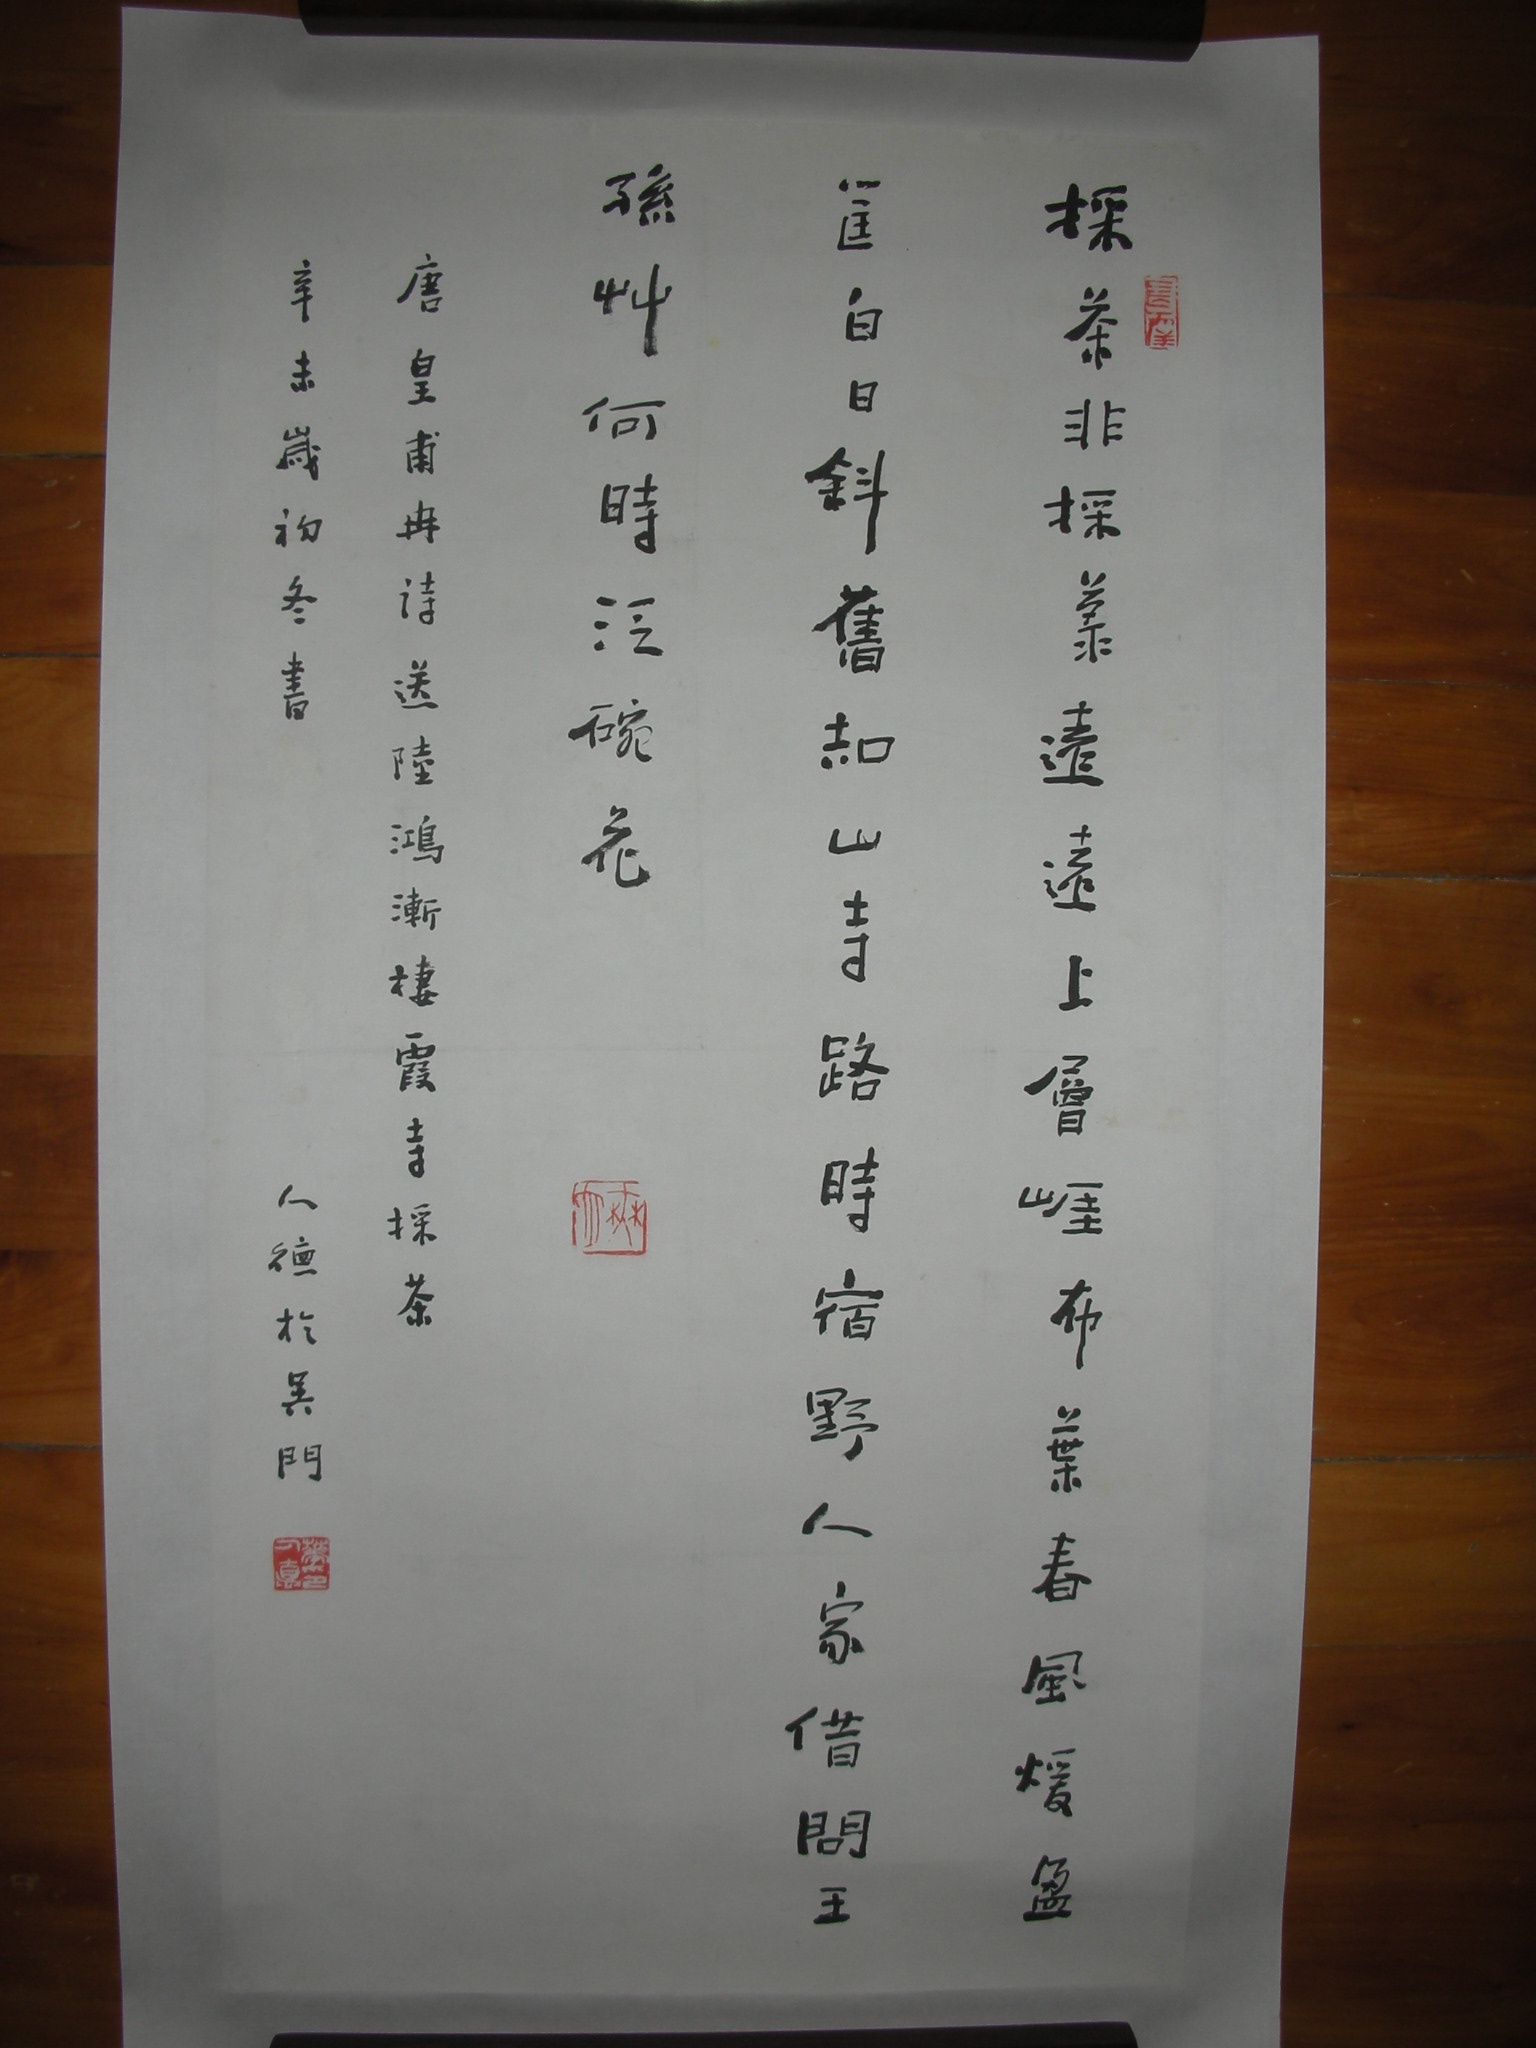 採茶非採菉遠遠上層崖布葉春風煖盈
筐白日斜舊知山寺路時宿野人家借問王
孫艸何時泛碗花
唐皇甫冉詩送陸鴻漸棲霞寺採茶
辛未歲初冬書
人德於吴門